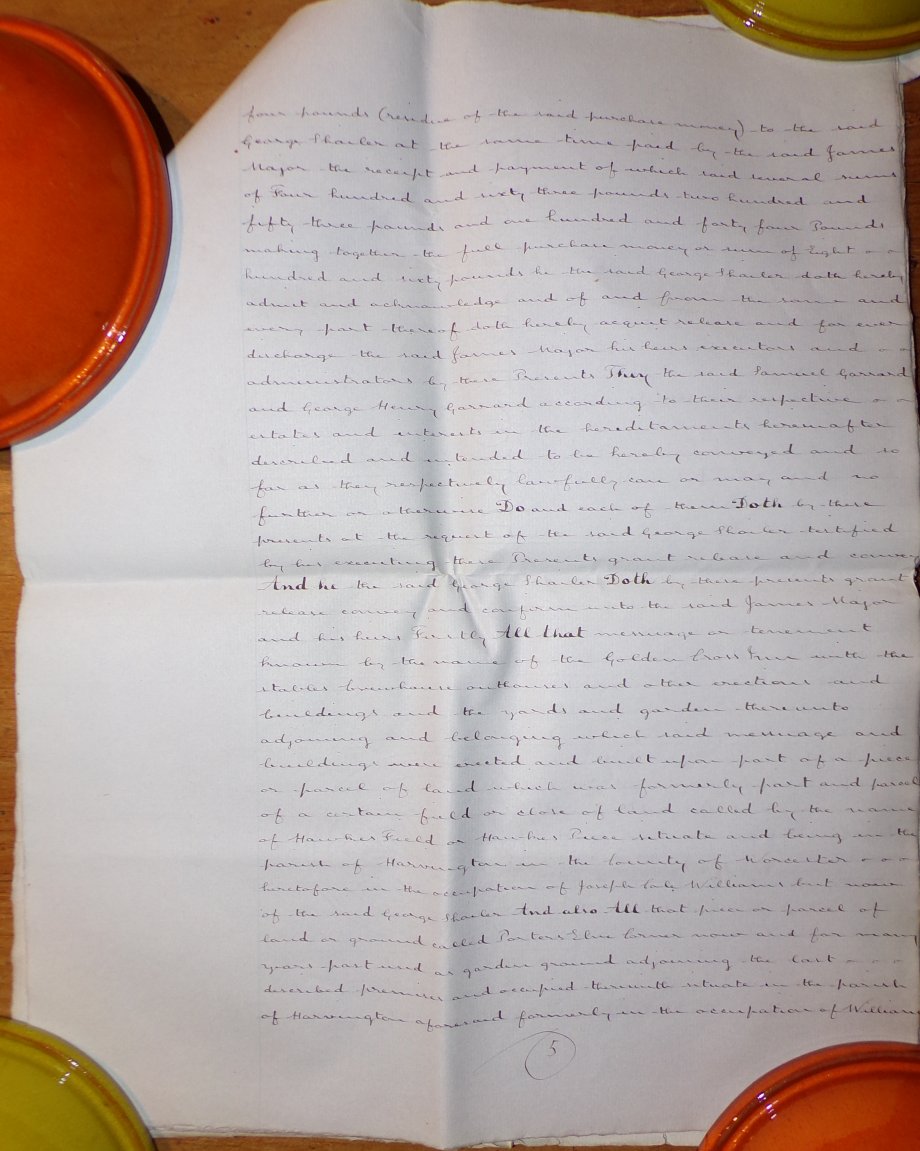 four pounds (residue of the said purchase money) to the said
George Shailer at the same time paid by the said James
Major the receipt and payment of which said several sums
of Four hundred and sixty three pounds two hundred and
fifty three pounds and one hundred and forty four Pounds
making together the full purchase money or sum of Eight
hundred and sixty pounds he the said George Shailer doth hereby
admit and acknowledge and of and from the same and
every part thereof doth hereby acquit release and for ever
discharge the said James Major his heirs executors and
administrators by these Presents They the said Samuel Garrard
and George Henry Garrard according to their respective
estates and interests in the hereditaments hereinafter
described and intended to be hereby conveyed and so
far as they respectively lawfully can or may and no
further or otherwise Do and each of them Doth by these
presents at the request of the said George Shailer testified
by his executing these Presents grant release and convey
And he the said George Shailer Doth by these presents grant
release convey and confirm unto the said James Major
and his heirs Firstly All that messuage or tenement
known by the name of the Golden Cross Inn with the
stables brewhouse outhouses and other erections and
buildings and the yards and garden thereunto
adjoining and belonging which said messuage and
buildings were erected and built upon part of a piece
or parcel of land which was formerly part and parcel
of a certain field or close of land called by the name
of Hawkes Field or Hawkes Piece situate and being in the
parish of Harvington in the County of Worcester
heretofore in the occupation of Joseph Williams but now
of the said George Shailer And also All that piece or parcel of
land or ground called Porters Elm Corner now and for many
years past used as garden ground adjoining the last
described premises and occupied therewith situate in the parish
of Harvington aforesaid formerly in the occupation of William
5